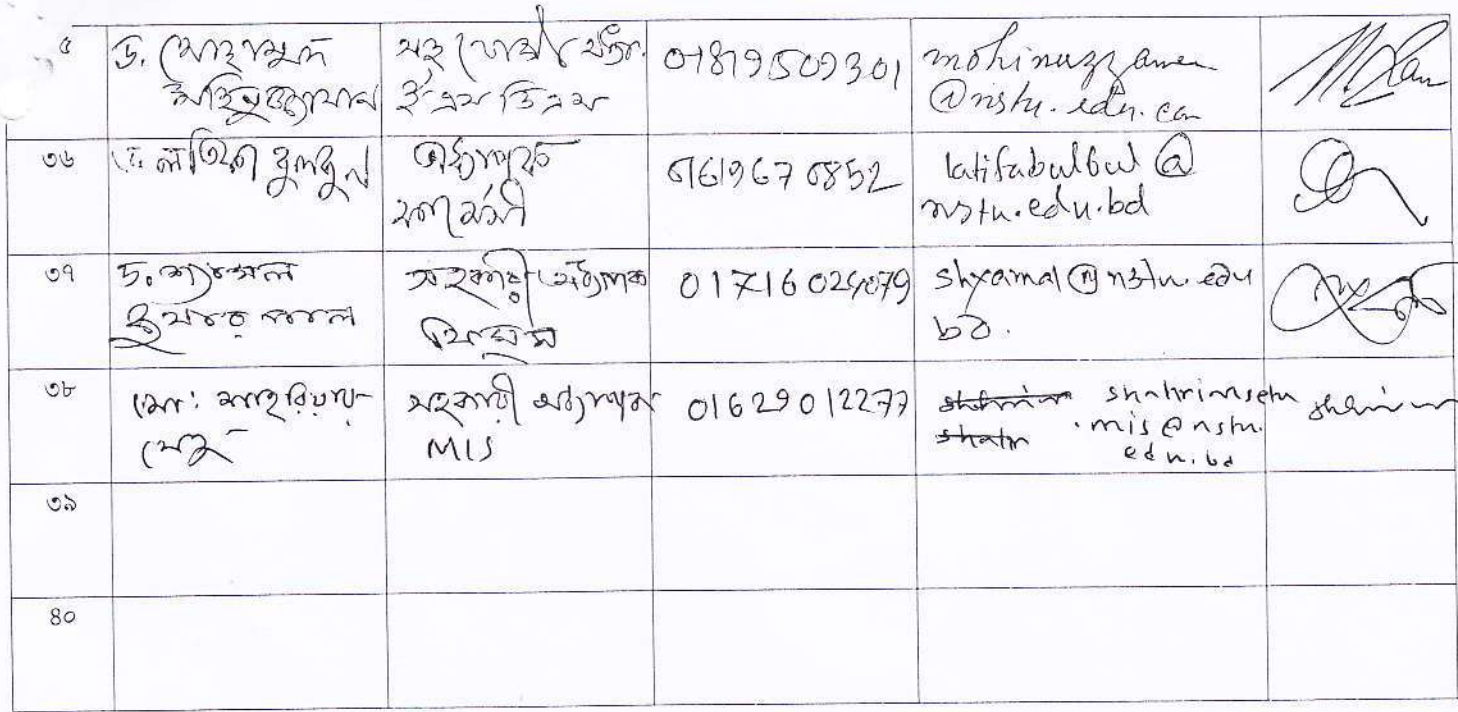 ৫
ড. মোহাম্মদ
মহিনুজ্জামান
সহযোগী অধ্যা.
ই এস ডি এম
01819509301
mohinuzzaman
@nstu.edu.com
৩৬
ড. লতিফা বুলবুল
অধ্যাপক
ফার্মেসী
01619670852
latifabulbul@
nstu.edu.bd
৩৭
ড. শ্যামল
কুমার পাল
সহকারী অধ্যাপক
01716024079
shyamal@nstu.edu
bd.
৩৮
মো: শাহরিয়ার
সেতু
সহকারী অধ্যাপক
MIS
01629012277
shahrimsetu
.mis@nstu.
edu.bd
৩৯
৪০